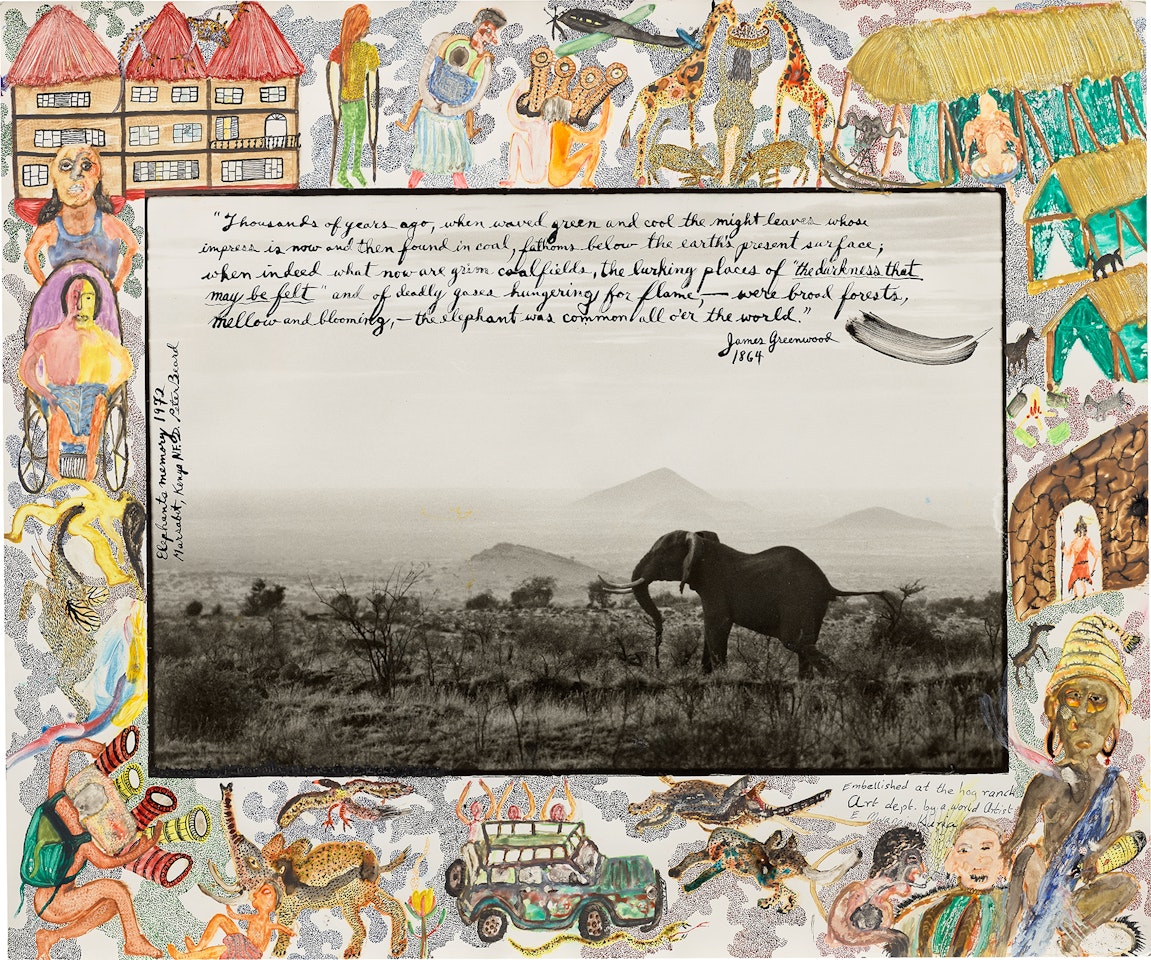 "Thousands of years ago, when waved green and cool the might leaves whose
impress is now and then found in coal, fathoms below the earth's present surface;
when indeed what now are grim coalfields, the lurking places of "the darkness that
may be felt" and of deadly gases hungering for flame, — were broad forests,
mellow and blooming, — the elephant was common all o'er the world."
James Greenwood
1864
Elephants memory 1972
Marsabit, Kenya N.F.D. Peter Beard
Embellished at the hog ranch
Art dept. by a world Artist
E.